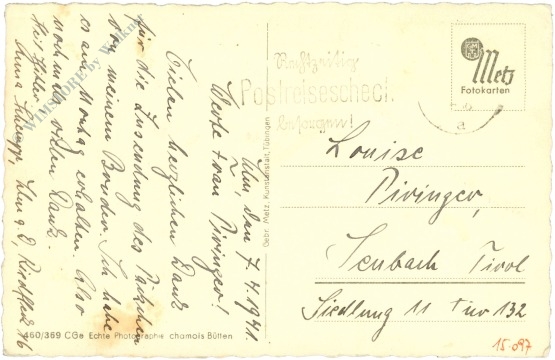 Ulm, den 7.4.1941.
Werte Frau Piringer!
Vielen herzlichen Dank
für die Zusendung des Päckchen
von meinem Bruder. Ich habe
es am Montag erhalten. Also
nochmals vielen Dank.
Heil Hitler
Anna
Ulm a. D.
WIMSTORE by
Gebr. Metz, Kunstanstalt, Tübingen
460/369 CGe Echte Photographie chamois Bütten
Rechtzeitig
Postreisescheck
besorgen!
Metz
Fotokarten
a
Louise
Piringer,
Seubach Tirol
Siedlung 11 Tür 132
15.097